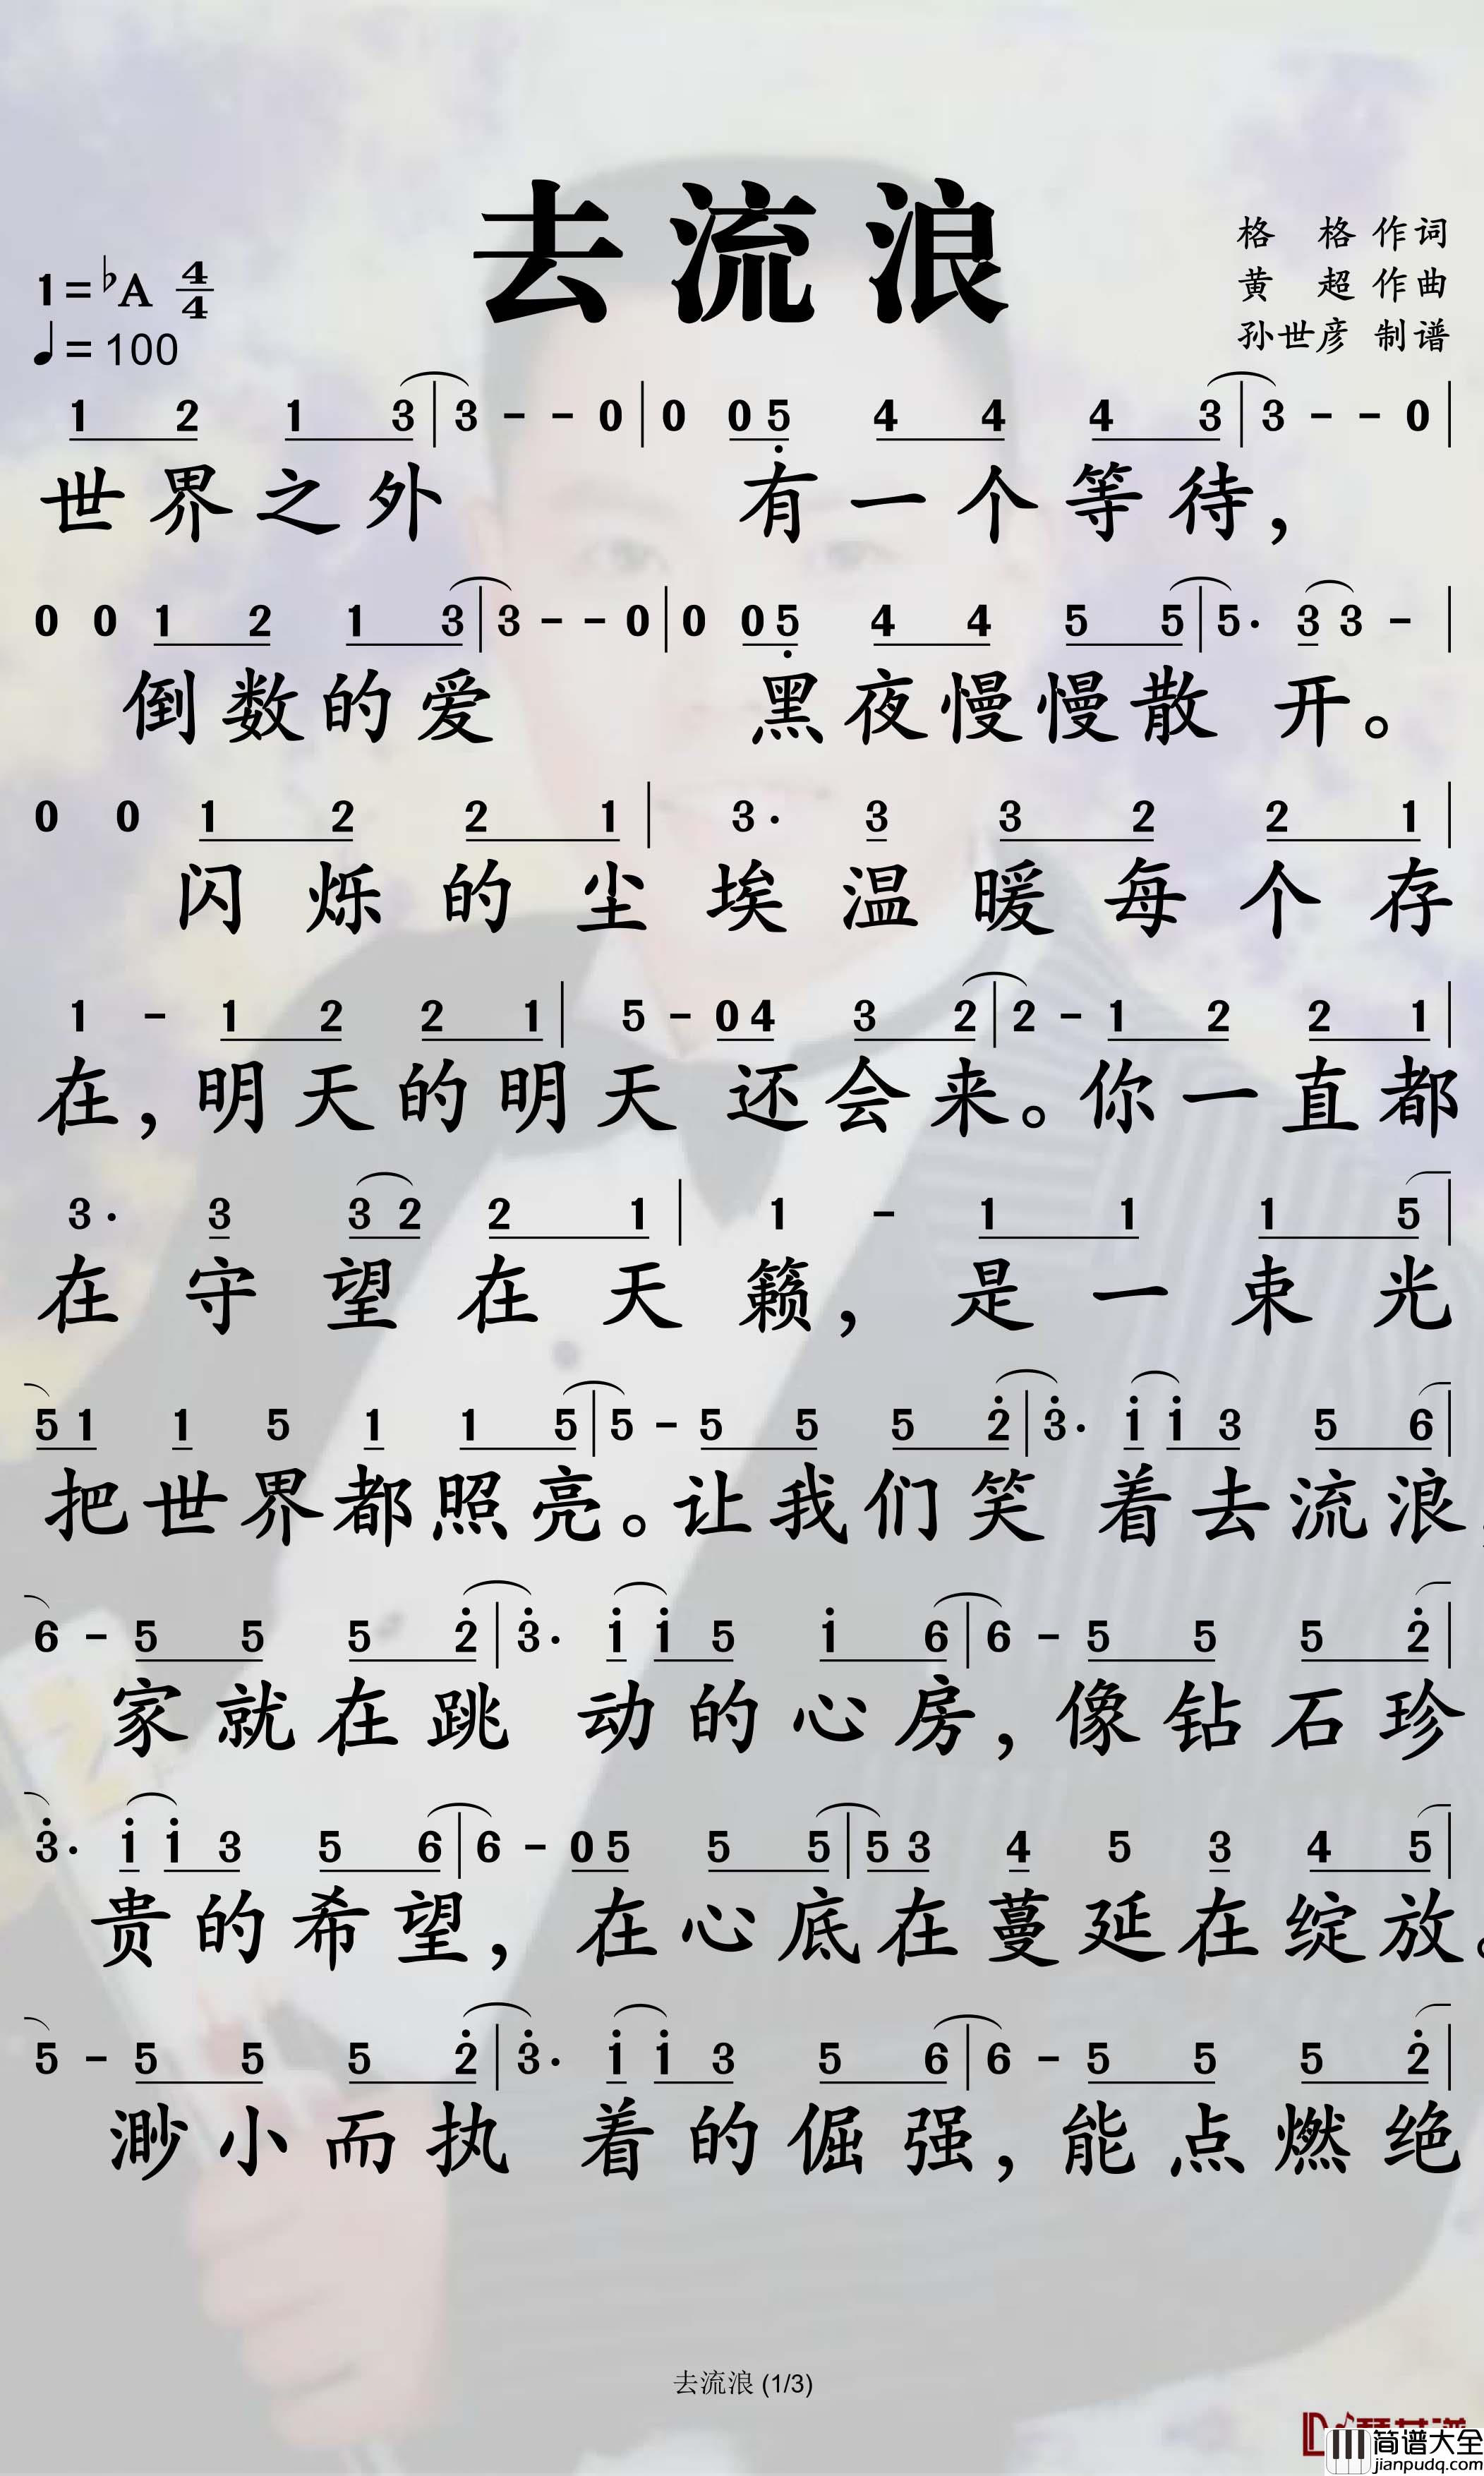 去流浪
格 格 作词
黄 超 作曲
孙世彦 制谱
1=♭A 4/4
♩=100
1 2 1 3 | 3 - - 0 | 0 0 5 4 4 4 3 | 3 - - 0 |
世界之外 有一个等待，
0 0 1 2 1 3 | 3 - - 0 | 0 0 5 4 4 5 5 | 5· 3 3 - |
倒数的爱 黑夜慢慢散 开。
0 0 1 2 2 1 | 3· 3 3 2 2 1 |
闪烁的尘埃温暖每个存
1 - 1 2 2 1 | 5 - 0 4 3 2 | 2 - 1 2 2 1 |
在，明天的明天 还会来。你一直都
3· 3 3 2 2 1 | 1 - 1 1 1 5 |
在守望在天籁，是一束光
5 1 1 5 1 1 5 | 5 - 5 5 5 2 | 3· 1 1 3 5 6 |
把世界都照亮。让我们笑 着去流浪
6 - 5 5 5 2 | 3· 1 1 5 1 6 | 6 - 5 5 5 2 |
家就在跳 动的心房，像钻石珍
3· 1 1 3 5 6 | 6 - 0 5 5 5 | 5 3 4 5 3 4 5 |
贵的希望，在心底在蔓延在绽放。
5 - 5 5 5 2 | 3· 1 1 3 5 6 | 6 - 5 5 5 2 |
渺小而执 着的倔强，能点燃绝
去流浪 (1/3)
简谱大全
jianpudq.com